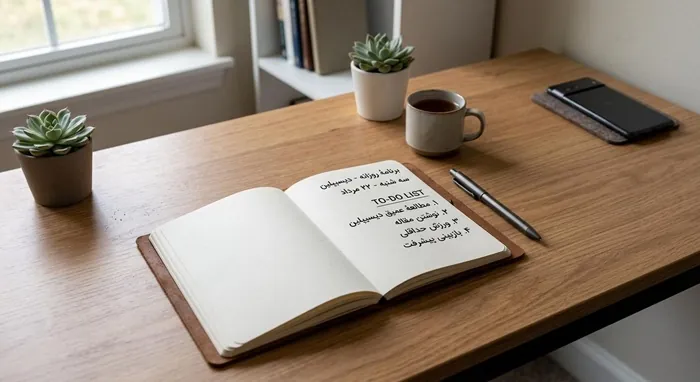 برنامهٔ روزانه - دیسیپلین
سه شنبه - ۲۲ مرداد
TO-DO LIST
۱. مطالعهٔ عمیق دیسیپلین
۲. نوشتن مقاله
۳. ورزش حداقلی
۴. بازبینی پیشرفت